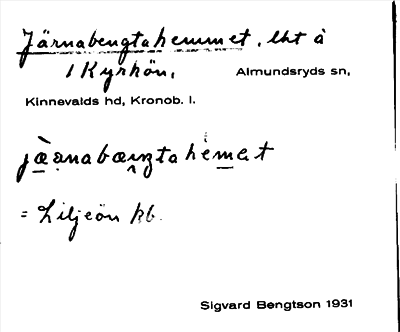 Järnabengtahemmet, lht å
1 Kyrkön.
Almundsryds sn,
Kinnevalds hd, Kronob. l.
jæ̀rnabæŋtahemet
= Liljeön kb.
Sigvard Bengtson 1931